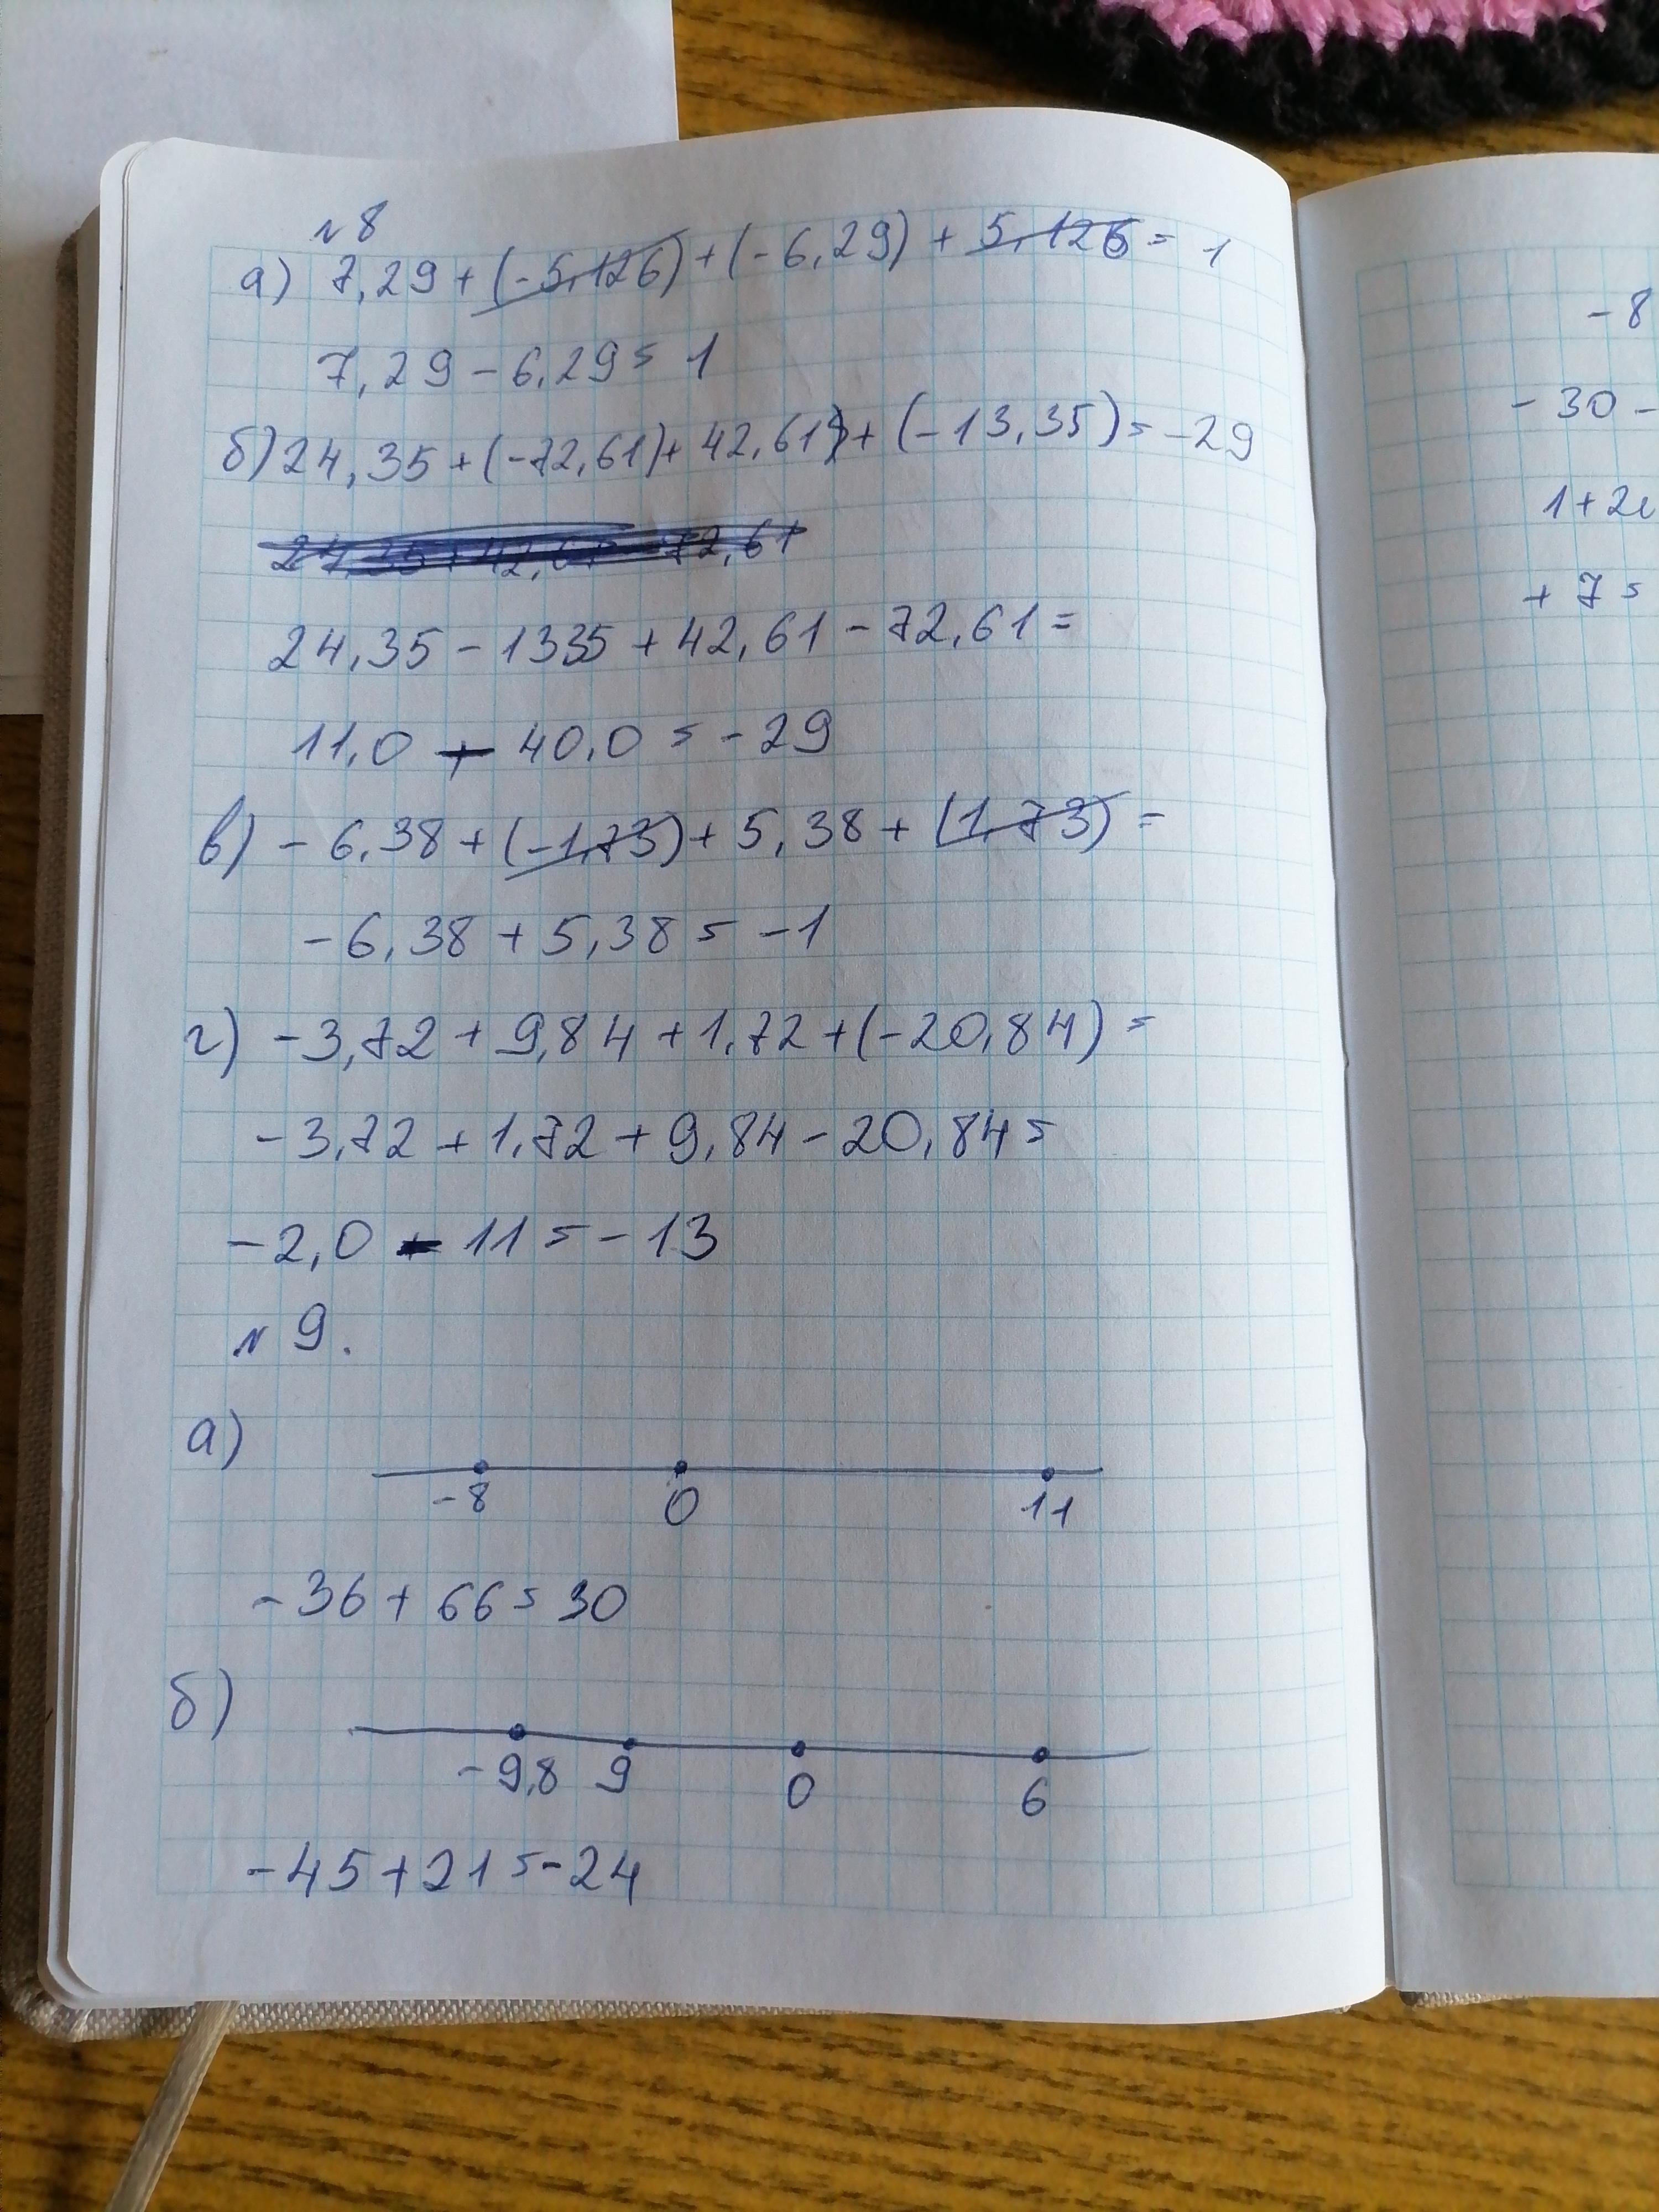 №8
а) 7,29 + (-5,126) + (-6,29) + 5,126 = 1
7,29 - 6,29 = 1
б) 24,35 + (-72,61) + 42,61) + (-13,35) = -29
24,35 + 42,61 - 72,61
24,35 - 1335 + 42,61 - 72,61 =
11,0 - 40,0 = -29
в) - 6,38 + (-1,73) + 5,38 + (1,73) =
-6,38 + 5,38 = -1
г) -3,72 + 9,84 + 1,72 + (-20,84) =
-3,72 + 1,72 + 9,84 - 20,84 =
-2,0 - 11 = -13
№ 9.
а)
-8 0 11
-36 + 66 = 30
б)
-9,8 9 0 6
-45 + 21 = -24
- 8
- 30 -
1 + 2
+ 7 =